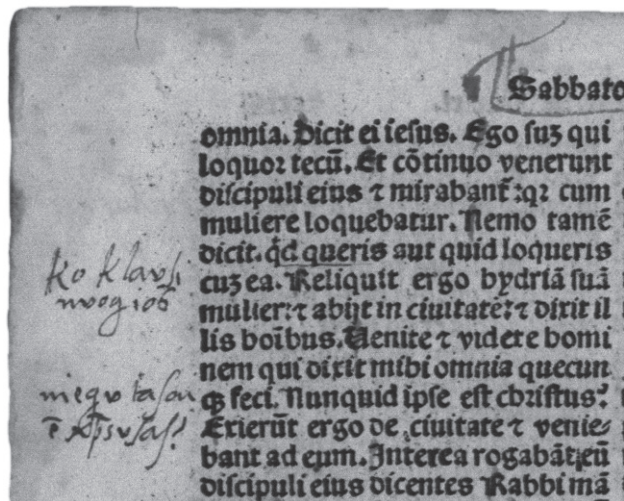 Sabbato
omnia. Dicit ei ieſus. Ego ſuꝫ qui
loquor tecū. Et cōtinuo venerunt
diſcipuli eius ⁊ mirabant᷑: qꝛ cum
muliere loquebatur. Nemo tamē
dicit. qd̄ queris aut quid loqueris
cuꝫ ea. Reliquit ergo hydriā ſuā
mulier: ⁊ abijt in ciuitatē: ⁊ dixit il
lis hoībus. Venite ⁊ videte homi
nem qui dixit mihi omnia quecun
qꝫ feci. Nunquid ipſe eſt chriſtus?
Exierūt ergo de ciuitate ⁊ venie⸗
bant ad eum. Interea rogabāt eū
diſcipuli eius dicentes Rabbi mā
ko klavſi
nvog ios
niegv